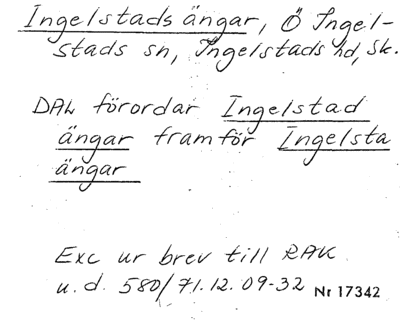 Ingelstads ängar, Ö Ingel-
stads sn, Ingelstads hd, Sk.
DAL förordar Ingelstad
ängar framför Ingelsta
ängar
Exc ur brev till RAK
u.d. 580/71.12.09-32 Nr 17342